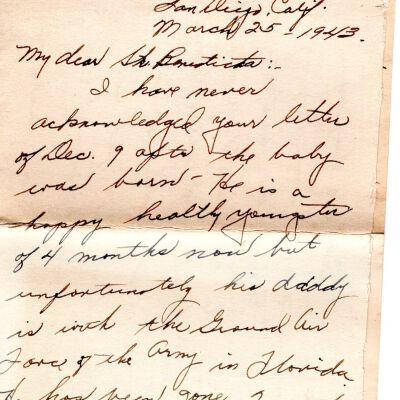 San Diego, Calif.
March 25 - 1943.
My dear Sr. Benedicta:-
I have never
acknowledged your letter
of Dec. 9 after the baby
was born - He is a
happy healthy youngster
of 4 months now but
unfortunately his daddy
is with the Ground Air
Force of the Army in Florida.
has been gone